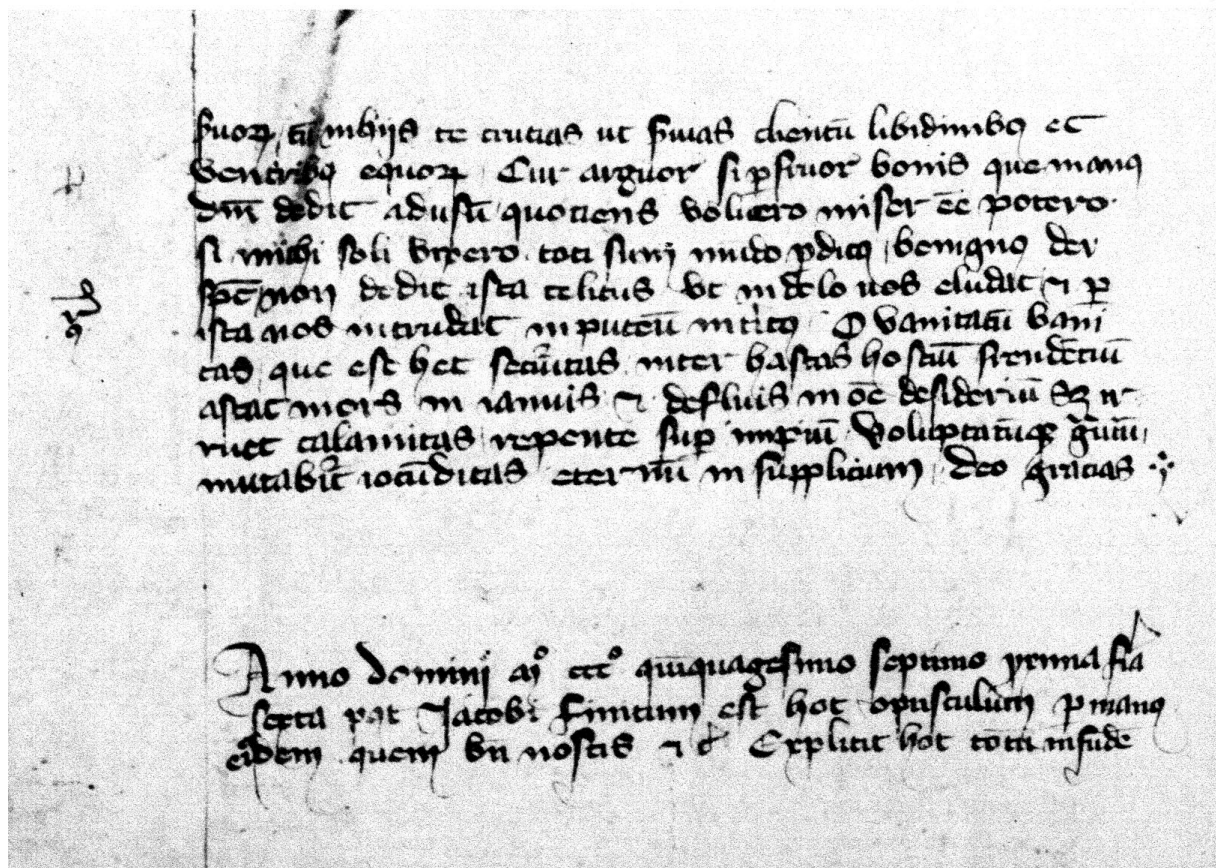 suorꝝ cū in hiis te crucias ut ſuias clientū libidinibꝯ et
ventribꝯ equorꝝ Cur arguor si ꝑfruor bonis que manꝯ
dm̄ dedit ad usū quociens voluero miser ēē potero
si michi soli vixero toti sum mūdo ꝑditꝯ benignꝯ
spēm non dedit ista celitus ut in delo nos eludat ⁊ ꝑ
ista nos intrudat in puteū int̄itꝯ O vanitatū vani
tas que est hec secūitas inter hastas hostiū frendētiū
astat mors in ianuis ⁊ defluis in oē desideriū sꝫ ir
ruet calamitas repente suꝑ impiū voluptatūqꝫ
mutabit̄ iocūditas eternū in supplicium deo gracias
Anno domini mͦ cccͦ quīquagesimo septimo fīa
sexta Jacobi finitum est hoc opusculum ꝑ manꝯ
eiꝰdem quem bn̄ noscis ⁊ cͭ Explicit hoc totū infūde